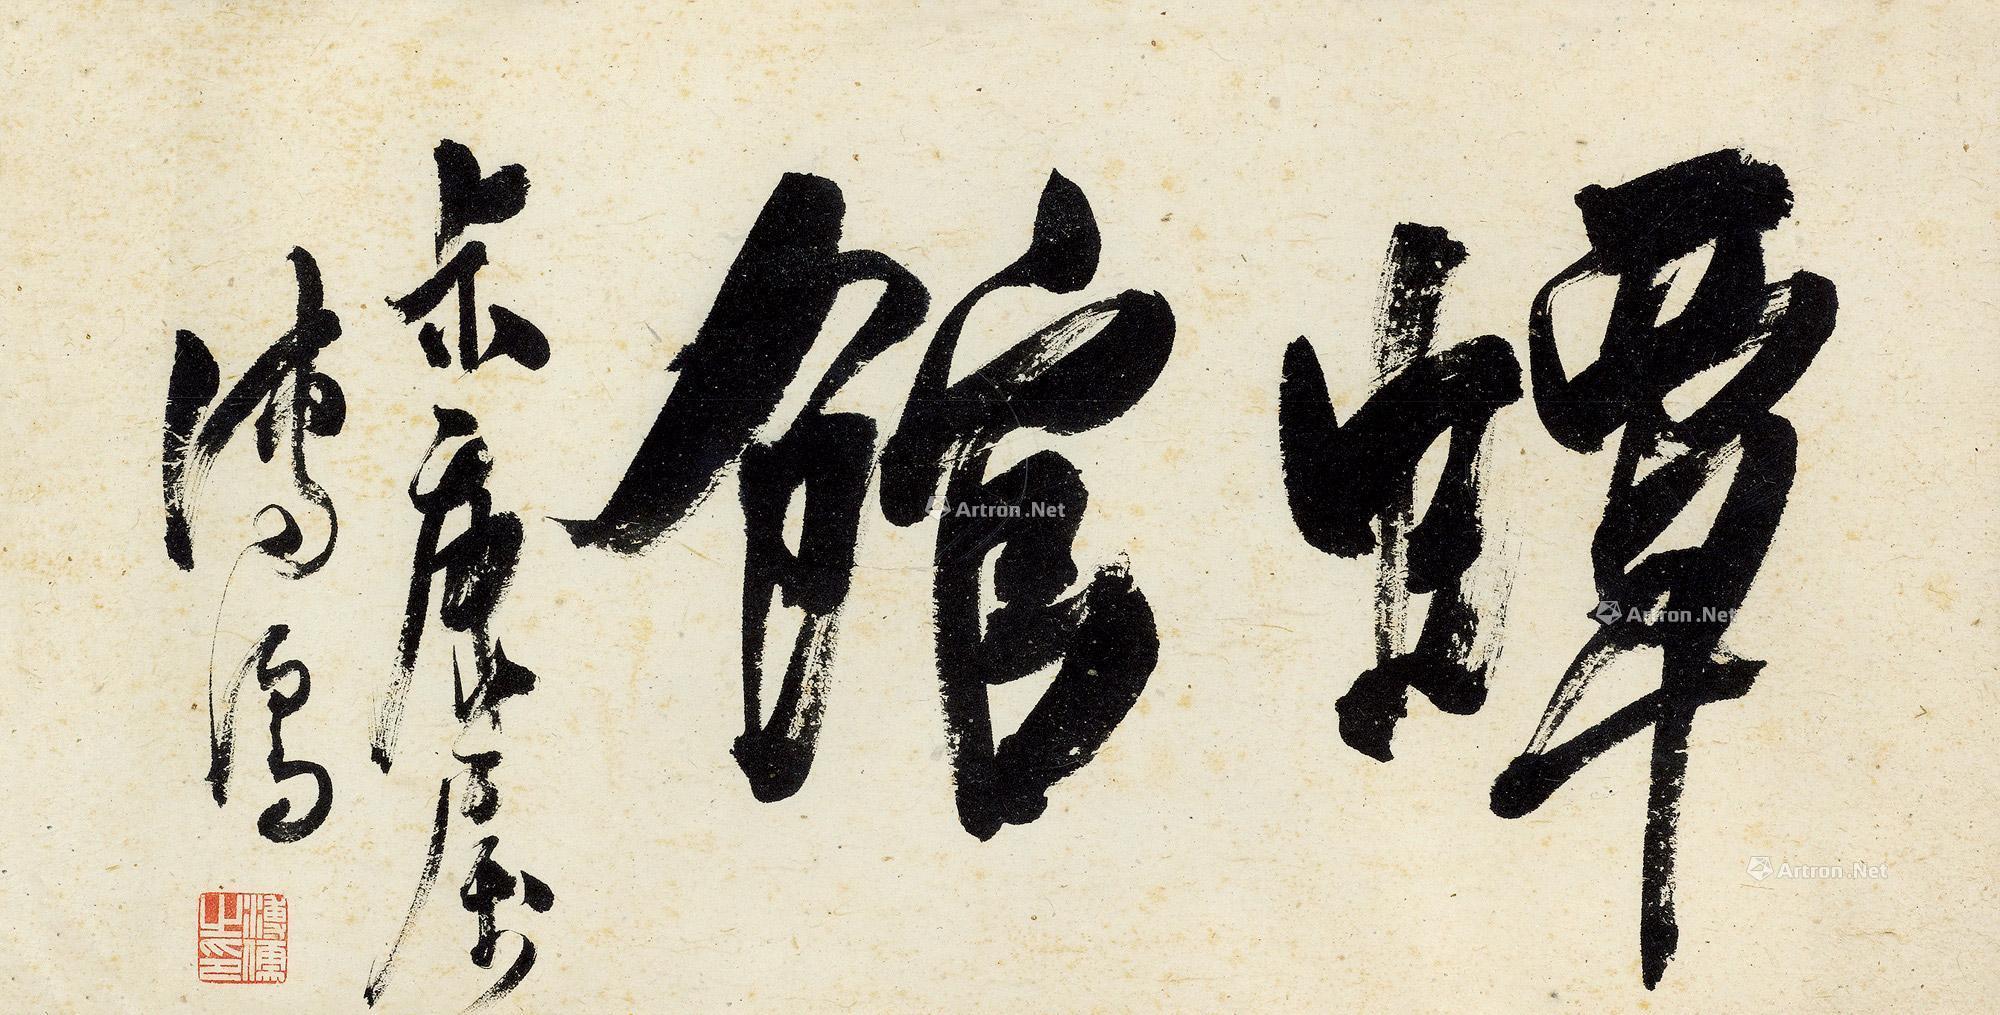 蟫館
溥儒
溥儒之印
Artron.Net
Artron.Net
Artron.Net